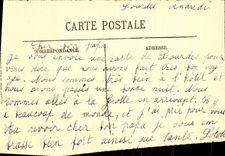 Lourdes Vendredi
CARTE POSTALE
CORRESPONDANCE ADRESSE
Cher bon papa
Je vous envoie une carte de Lourdes pour
vous dire que nous avons fait très bon voy
age. Nous sommes très bien à l'hôtel et
nous avons passée une bonne nuit. Nous
sommes allés à la Grotte en arrivant. Il y
a beaucoup de monde, et j'ai prié pour vous
Au revoir cher bon papa je vous em
brasse bien fort ainsi que tante.